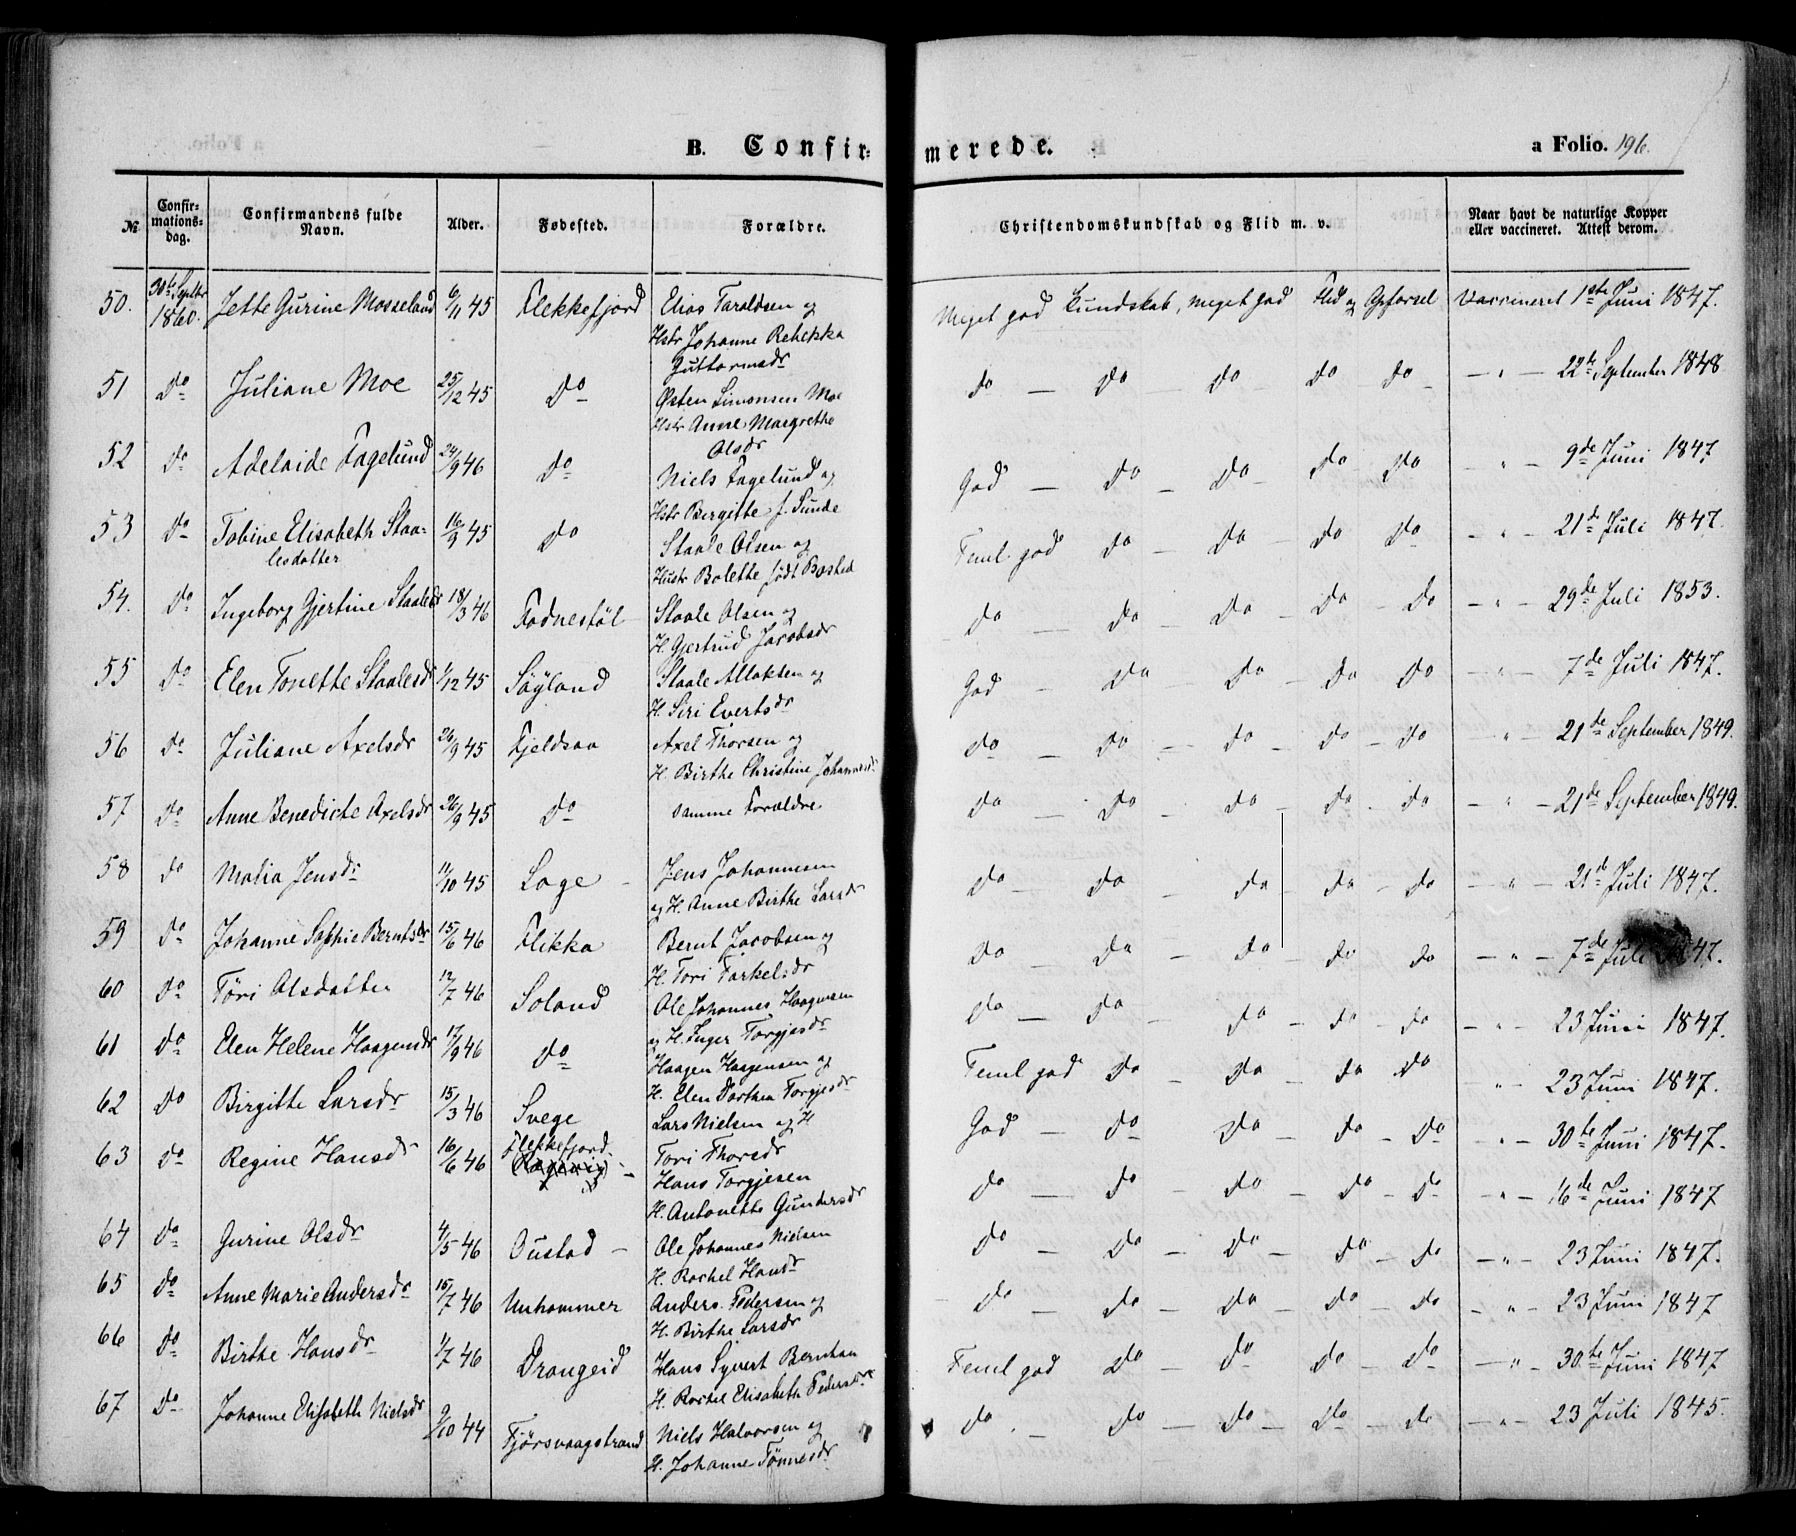 B. Confir-
merede.
a Folio. 196.
№
Confir-
mations-
dag.
Confirmandens fulde
Navn.
Alder.
Fødested.
Forældre.
Christendomskundskab og Flid m. v.
Naar havt de naturlige Kopper
eller vaccineret. Attest derom.
50. 30te Septbr 1860. Jette Gurine Mosseland 6/11 45 Flekkefjord Elias Taraldsen og Meget god Kundskab, meget god Flid og Opførsel Vaccineret 1ste Juni 1847.
Hstr Johanne Rebekka
Guttormsdr
51 Do Juliane Moe 25/12 45 Do Østen Simonsen Moe do — Do — Do Do Do — " — 22de September 1848
Hstr Anne Margrethe
Olsdr
52 Do Adelaide Fagelund 24/9 46 Do Niels Fagelund og God — Do — Do — Do Do — " — 9de Juni 1847
Hstr Birgitte f. Sunde
53 Do Tobine Elisabeth Staa- 16/9 45 Do Staale Olsen og Teml. god do — Do — Do Do — " — 21de Juli 1847.
lesdatter Hustr Bolette født Bøsted
54. Do Ingeborg Gjertine Staalesdr 18/3 46 Fodnestøl Staale Olsen og Do — Do — Do — Do — Do — " — 29de Juli 1853.
H. Gjertrud Jacobsdr
55 Do Elen Tonette Staalesdr 1/12 45 Søyland Staale Atlaksen og God — Do — Do — Do — Do " 7de Juli 1847.
H. Siri Evertsdr
56 Do Juliane Axelsdr 26/9 45 Fjeldsaa Axel Thorsen og Do — Do — Do — Do — Do " — 21de September 1849.
H. Birthe Christine Johannesdr
57 Do Anne Benedicte Axelsdr 26/9 45 Do samme Forældre Do — Do — Do — Do . Do — " — 21de September 1849.
58 do Malia Jensdr 11/10 45 Loge Jens Johannesen Do — Do — Do — Do — Do " — 21de Juli 1847.
og H. Anne Birthe Larsdr
59 Do Johanne Sophie Berntsdr 15/6 46 Flikka Bernt Jacobsen og Do — Do — Do Do Do — " — 7de Juli 1847.
H. Tori Tarkelsdr
60 Do Töri Olsdatter 17/7 46 Soland Ole Johannes Haagensen Do — Do — Do — Do — Do — " — 23 Juni 1847.
og H. Inger Torgjesdr
61 Do Elen Helene Haagensdr 17/9 46 Do Haagen Haagensen og Teml god Do — Do — Do Do " 23 Juni 1847.
H. Elen Dorthea Torgjesdr
62 Do Birgitte Larsdr 15/3 46 Svege Lars Nielsen og H God — Do — Do — Do — Do " — 30te Juni 1847.
Tori Thorsdr
63 Do Regine Hansdr 16/6 46 Flekkefjord. Hans Torgjesen Do — Do — Do — Do — Do " — 16de Juni 1847
H. Antonette Gundersdr
64 Do Gurine Olsdr 4/5 46 Oustad Ole Johannes Nielsen Do — Do — Do — Do — Do — " — 23 Juni 1847.
H. Rachel Hansdr
65 Do Anne Marie Andersdr 15/7 46 Unhammer Anders Pedersen og Do — Do — Do — Do — Do — " — 23 Juni 1847
H. Birthe Larsdr
66 Do Birthe Hansdr 1/7 46 Drangeid Hans Syvert Berntsen Teml god Do — Do — Do — Do — " — 30te Juni 1847
H. Rachel Elisabeth Pedersdr
67 Do Johanne Elisabeth Nielsdr 9/10 44 Fjörsvaagstrand Niels Halvorsen og Do . — Do — Do — Do — do — " — 23 Juli 1845.
H. Johanne Tönnesdr